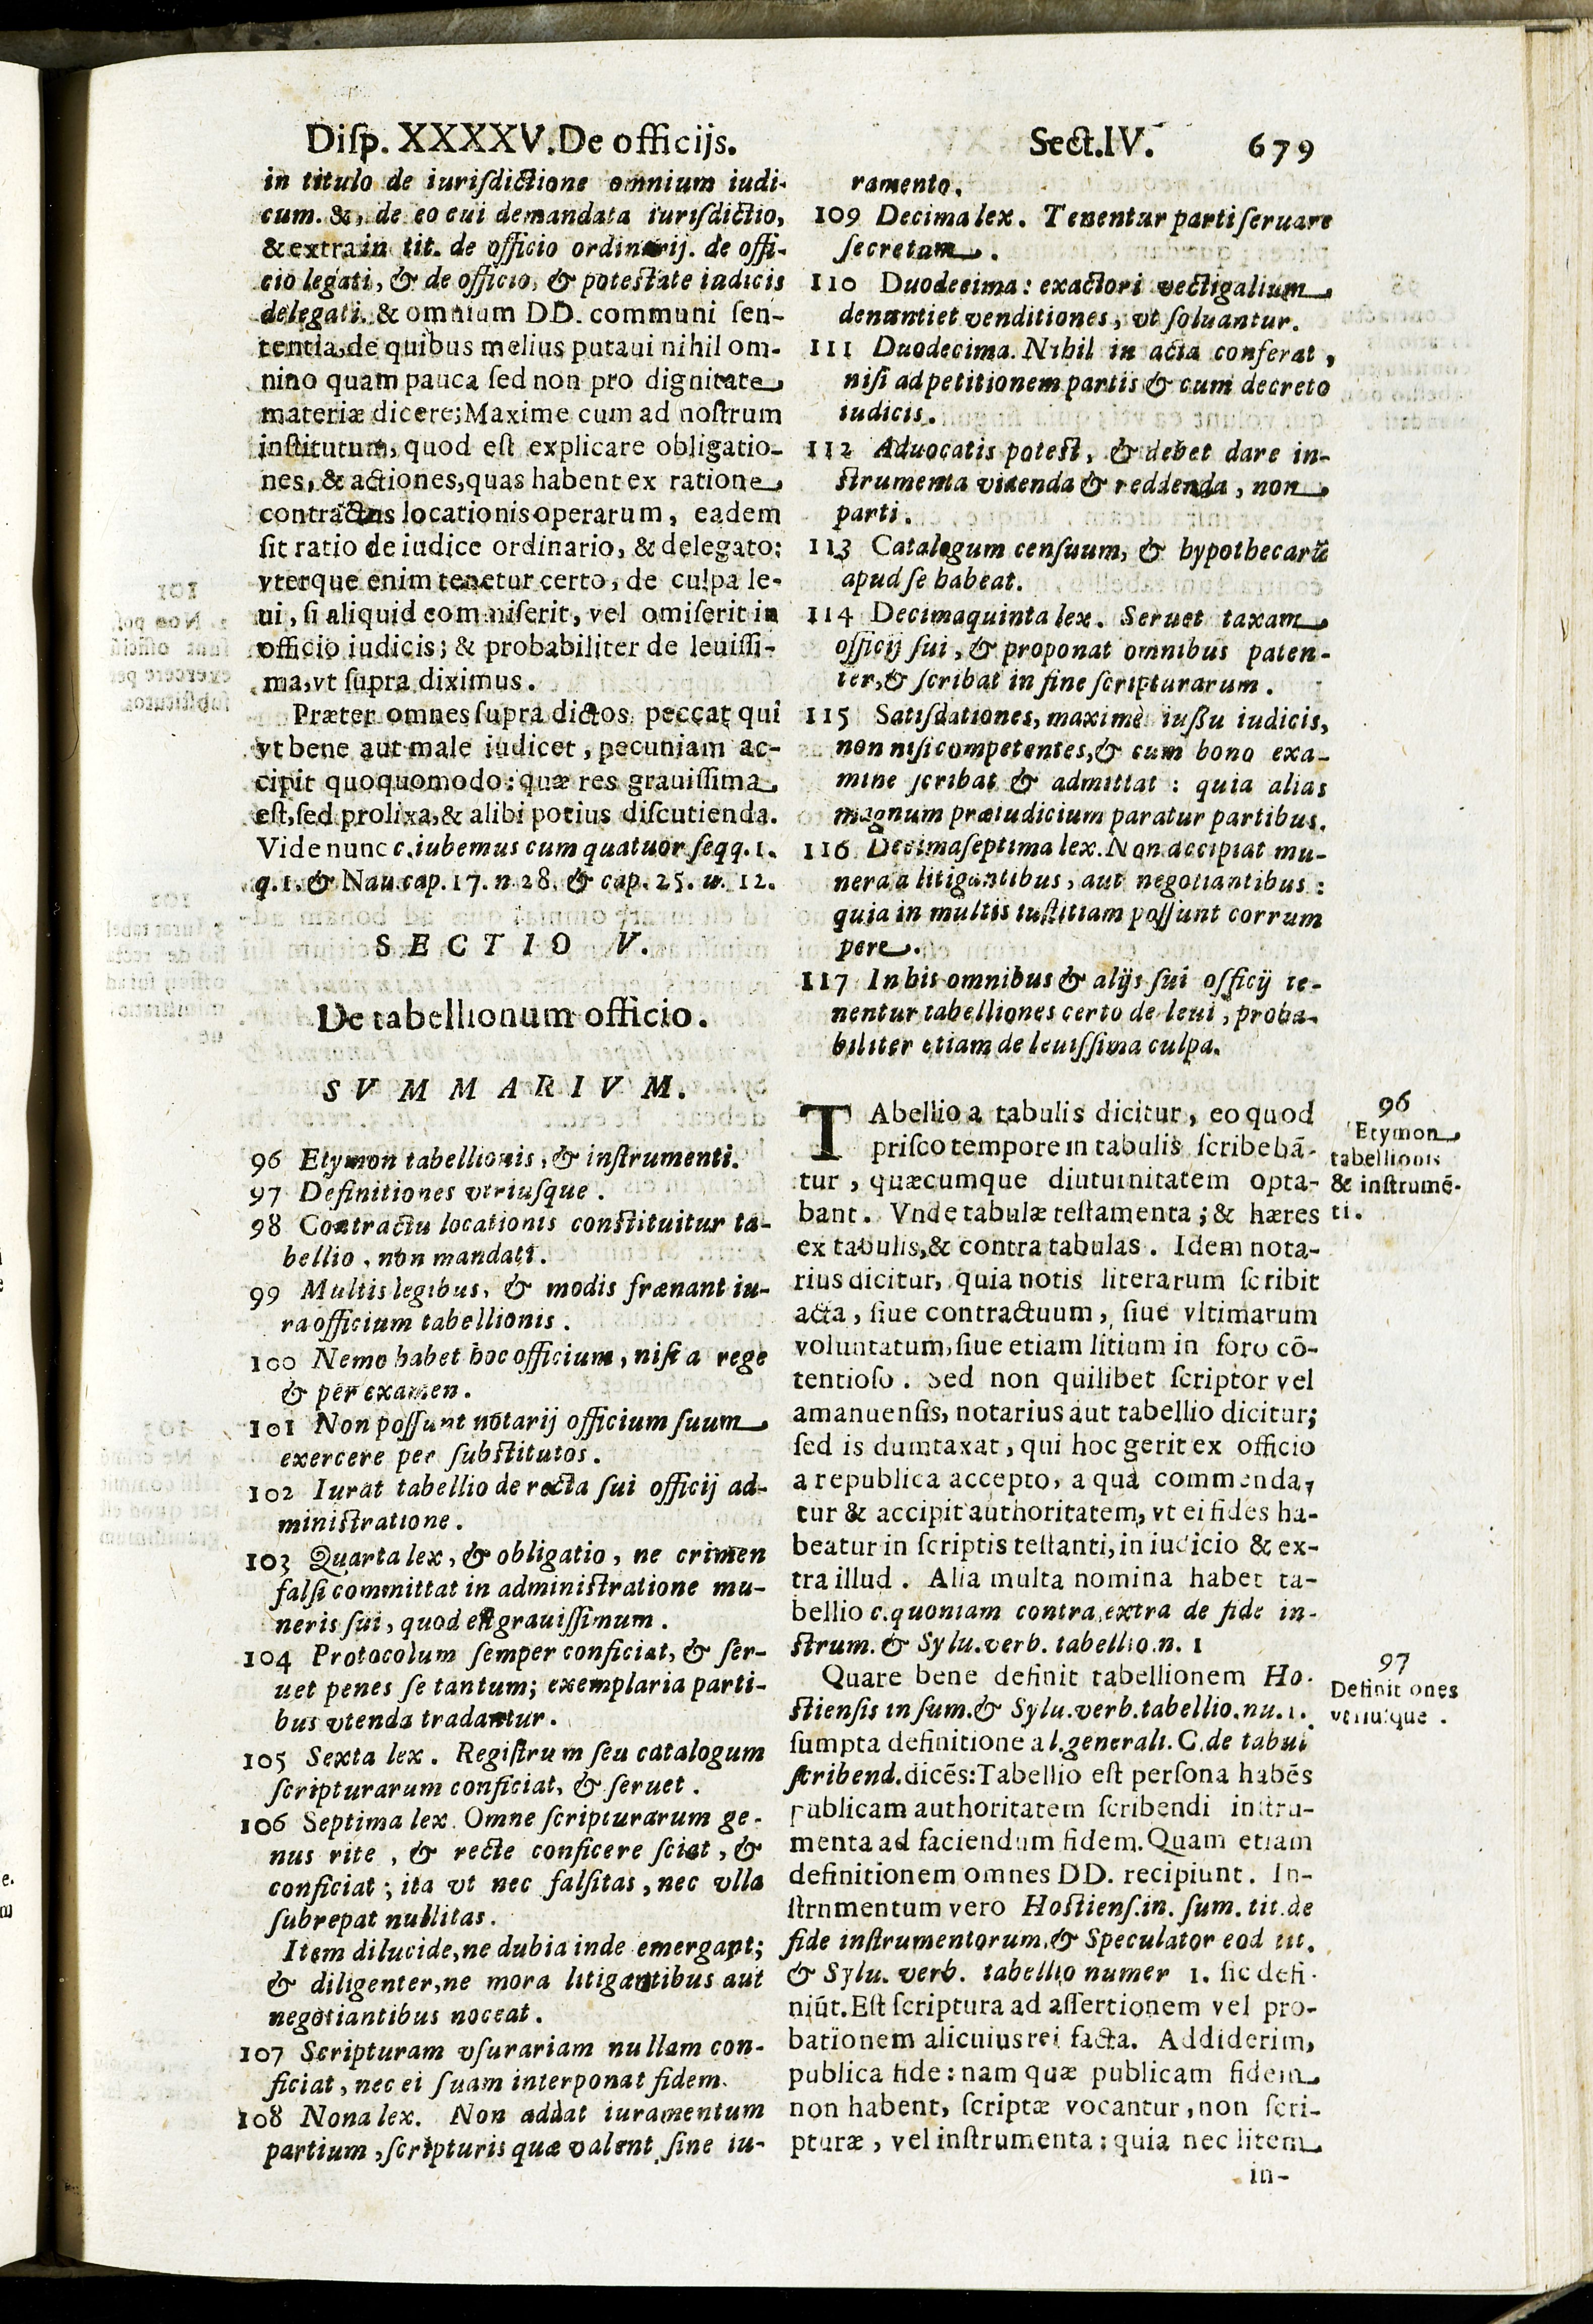 Diſp. XXXXV. De officijs.
Sect. IV.
679
in titulo de iuriſdictione omnium iudi-
cum. &, de eo cui demandata iuriſdictio,
& extra in tit. de officio ordinarij. de offi-
cio legati, & de officio, & potestate iudicis
delegati. & omnium DD. communi ſen-
tentia, de quibus melius putaui nihil om-
nino quam pauca ſed non pro dignitate
materiæ dicere; Maxime cum ad noſtrum
inſtitutum, quod eſt explicare obligatio-
nes, & actiones, quas habent ex ratione
contractus locationis operarum, eadem
ſit ratio de iudice ordinario, & delegato:
vterque enim tenetur certo, de culpa le-
ui, ſi aliquid commiſerit, vel omiſerit in
officio iudicis; & probabiliter de leuiſſi-
ma, vt ſupra diximus.
Præter omnes ſupra dictos peccat qui
vt bene aut male iudicet, pecuniam ac-
cipit quoquomodo: quæ res grauiſſima
eſt, ſed prolixa, & alibi potius diſcutienda.
Vide nunc c. iubemus cum quatuor ſeqq. 1.
q. 1. & Nau. cap. 17. n. 28. & cap. 25. n. 12.
SECTIO V.
De tabellionum officio.
SVMMARIVM.
96 Etymon tabellionis, & inſtrumenti.
97 Definitiones vtriuſque.
98 Contractu locationis constituitur ta-
bellio, non mandati.
99 Multis legibus, & modis frænant iu-
ra officium tabellionis.
100 Nemo habet hoc officium, niſi a rege
& per examen.
101 Non poſſunt notarij officium ſuum
exercere per ſubstitutos.
102 Iurat tabellio de recta ſui officij ad-
ministratione.
103 Quarta lex, & obligatio, ne crimen
falſi committat in administratione mu-
neris ſui, quod eſt grauiſſimum.
104 Protocolum ſemper conficiat, & ſer-
uet penes ſe tantum; exemplaria parti-
bus vtenda tradantur.
105 Sexta lex. Regiſtrum ſeu catalogum
ſcripturarum conficiat, & ſeruet.
106 Septima lex. Omne ſcripturarum ge-
nus rite, & recte conficere ſciat, &
conficiat; ita vt nec falſitas, nec vlla
ſubrepat nullitas.
Item dilucide, ne dubia inde emergant;
& diligenter, ne mora litigantibus aut
negotiantibus noceat.
107 Scripturam vſurariam nullam con-
ficiat, nec ei ſuam interponat fidem.
108 Nona lex. Non addat iuramentum
partium, ſcripturis quæ valent ſine iu-
ramento.
109 Decima lex. Tenentur parti ſeruare
ſecretum.
110 Duodecima: exactori vectigalium
denuntiet venditiones, vt ſoluantur.
111 Duodecima. Nihil in acta conferat,
niſi ad petitionem partis & cum decreto
iudicis.
112 Aduocatis potest, & debet dare in-
strumenta videnda & reddenda, non
parti.
113 Catalogum cenſuum, & hypothecarũ
apud ſe habeat.
114 Decimaquinta lex. Seruet taxam
officij ſui, & proponat omnibus paten-
ter, & ſcribat in fine ſcripturarum.
115 Satiſdationes, maximè iuſſu iudicis,
non niſi competentes, & cum bono exa-
mine ſcribat & admittat: quia alias
magnum præiudicium paratur partibus.
116 Decimaſeptima lex. Non accipiat mu-
nera a litigantibus, aut negotiantibus:
quia in multis iuſtitiam poſſunt corrum
pere.
117 In his omnibus & alijs ſui officij te-
nentur tabelliones certo de leui, proba-
biliter etiam de leuiſſima culpa.
TAbellio a tabulis dicitur, eo quod
priſco tempore in tabulis ſcribebã-
tur, quæcumque diuturnitatem opta-
bant. Vnde tabulæ teſtamenta; & hæres
ex tabulis, & contra tabulas. Idem nota-
rius dicitur, quia notis literarum ſcribit
acta, ſiue contractuum, ſiue vltimarum
voluntatum, ſiue etiam litium in foro cõ-
tentioſo. Sed non quilibet ſcriptor vel
amanuenſis, notarius aut tabellio dicitur;
ſed is dumtaxat, qui hoc gerit ex officio
a republica accepto, a qua commenda,
tur & accipit authoritatem, vt ei fides ha-
beatur in ſcriptis teſtanti, in iudicio & ex-
tra illud. Alia multa nomina habet ta-
bellio c. quoniam contra, extra de fide in-
strum. & Sylu. verb. tabellio. n. 1
Quare bene definit tabellionem Ho-
stienſis in ſum. & Sylu. verb. tabellio. nu. 1.
ſumpta definitione a l. generali. C. de tabul
ſcribend. dicẽs: Tabellio eſt perſona habẽs
publicam authoritatem ſcribendi inſtru-
menta ad faciendum fidem. Quam etiam
definitionem omnes DD. recipiunt. In-
ſtrnmentum vero Hostienſ. in. ſum. tit. de
fide inſtrumentorum. & Speculator eod tit.
& Sylu. verb. tabellio numer 1. ſic defi-
niũt. Eſt ſcriptura ad aſſertionem vel pro-
bationem alicuius rei facta. Addiderim,
publica fide: nam quæ publicam fidem
non habent, ſcriptæ vocantur, non ſcri-
pturæ, vel inſtrumenta: quia nec litem
in-
96
Etymon
tabellionis
& inſtrumẽ-
ti.
97
Definitiones
vtriuſque.